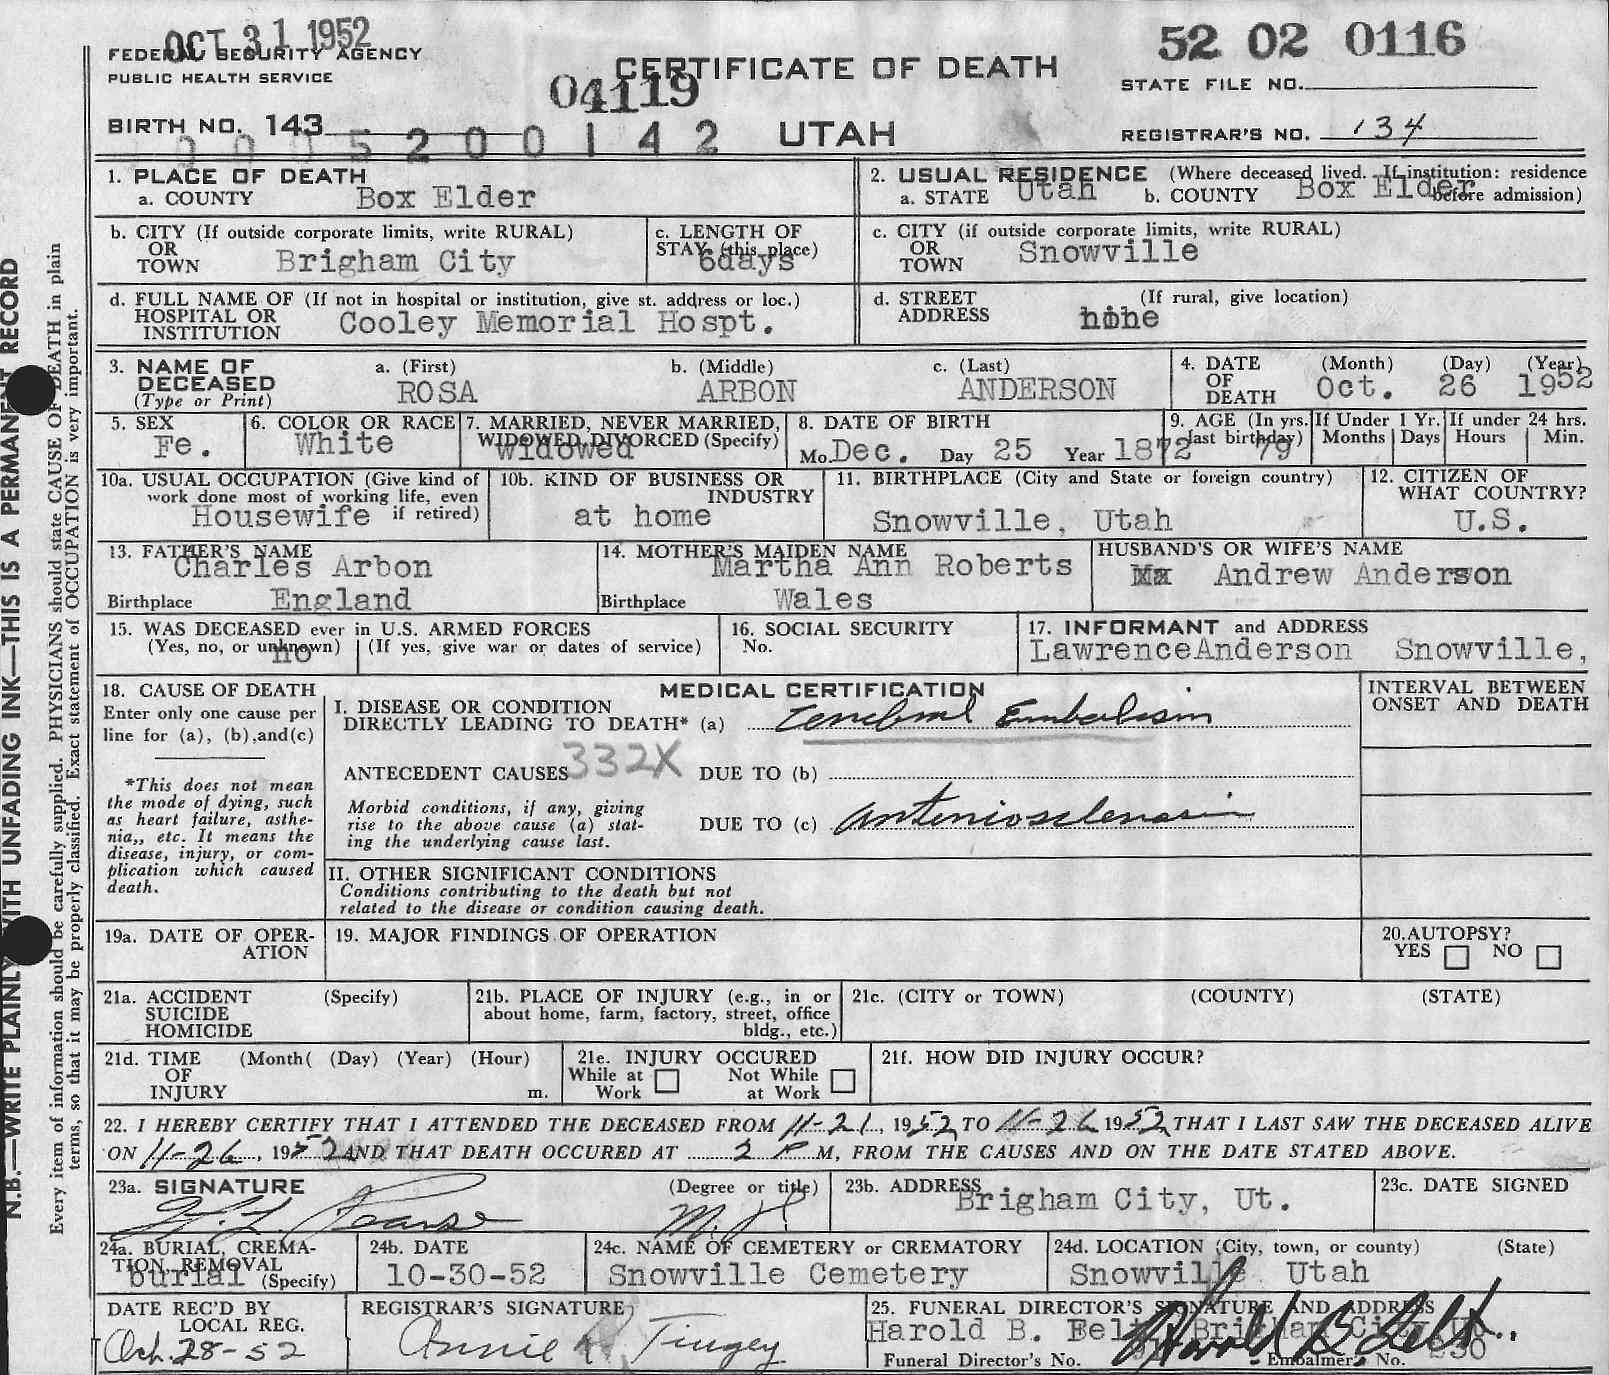 OCT 31 1952
FEDERAL SECURITY AGENCY
PUBLIC HEALTH SERVICE
CERTIFICATE OF DEATH
04119
52 02 0116
STATE FILE NO.
BIRTH NO. 143
5 2 0 0 1 4 2
UTAH
REGISTRAR'S NO. 134
1. PLACE OF DEATH
a. COUNTY Box Elder
2. USUAL RESIDENCE (Where deceased lived. If institution: residence before admission)
a. STATE Utah b. COUNTY Box Elder
b. CITY (If outside corporate limits, write RURAL)
OR
TOWN Brigham City
c. LENGTH OF
STAY (this place)
6days
c. CITY (if outside corporate limits, write RURAL)
OR
TOWN Snowville
d. FULL NAME OF (If not in hospital or institution, give st. address or loc.)
HOSPITAL OR
INSTITUTION Cooley Memorial Hospt.
d. STREET (If rural, give location)
ADDRESS
3. NAME OF
DECEASED
(Type or Print)
a. (First) b. (Middle) c. (Last)
ROSA ARBON ANDERSON
4. DATE (Month) (Day) (Year)
OF
DEATH Oct. 26 1952
5. SEX
Fe.
6. COLOR OR RACE
White
7. MARRIED, NEVER MARRIED,
WIDOWED, DIVORCED (Specify)
Widowed
8. DATE OF BIRTH
Mo. Dec. Day 25 Year 1872
9. AGE (In yrs. last birthday)
79
If Under 1 Yr.
Months Days
If under 24 hrs.
Hours Min.
10a. USUAL OCCUPATION (Give kind of
work done most of working life, even
if retired)
Housewife
10b. KIND OF BUSINESS OR
INDUSTRY
at home
11. BIRTHPLACE (City and State or foreign country)
Snowville, Utah
12. CITIZEN OF
WHAT COUNTRY?
U.S.
13. FATHER'S NAME
Charles Arbon
Birthplace England
14. MOTHER'S MAIDEN NAME
Martha Ann Roberts
Birthplace Wales
HUSBAND'S OR WIFE'S NAME
Andrew Anderson
15. WAS DECEASED ever in U.S. ARMED FORCES
(Yes, no, or unknown) (If yes, give war or dates of service)
no
16. SOCIAL SECURITY
No.
17. INFORMANT and ADDRESS
LawrenceAnderson Snowville,
18. CAUSE OF DEATH
Enter only one cause per
line for (a), (b),and(c)
*This does not mean
the mode of dying, such
as heart failure, asthe-
nia,, etc. It means the
disease, injury, or com-
plication which caused
death.
MEDICAL CERTIFICATION
I. DISEASE OR CONDITION
DIRECTLY LEADING TO DEATH* (a) Cerebral Embolism
ANTECEDENT CAUSES 332X DUE TO (b)
Morbid conditions, if any, giving
rise to the above cause (a) stat-
ing the underlying cause last.
DUE TO (c) arteriosclerosis
INTERVAL BETWEEN
ONSET AND DEATH
II. OTHER SIGNIFICANT CONDITIONS
Conditions contributing to the death but not
related to the disease or condition causing death.
19a. DATE OF OPER-
ATION
19. MAJOR FINDINGS OF OPERATION
20.AUTOPSY?
YES NO
21a. ACCIDENT (Specify)
SUICIDE
HOMICIDE
21b. PLACE OF INJURY (e.g., in or
about home, farm, factory, street, office
bldg., etc.)
21c. (CITY or TOWN) (COUNTY) (STATE)
21d. TIME (Month( (Day) (Year) (Hour)
OF
INJURY m.
21e. INJURY OCCURED
While at Work Not While at Work
21f. HOW DID INJURY OCCUR?
22. I HEREBY CERTIFY THAT I ATTENDED THE DECEASED FROM 11-21, 1952 TO 11-26 1952 THAT I LAST SAW THE DECEASED ALIVE
ON 11-26, 1952 AND THAT DEATH OCCURED AT 2 P M, FROM THE CAUSES AND ON THE DATE STATED ABOVE.
23a. SIGNATURE (Degree or title)
Pearse M.D.
23b. ADDRESS
Brigham City, Ut.
23c. DATE SIGNED
24a. BURIAL, CREMA-
TION, REMOVAL
(Specify)
burial
24b. DATE
10-30-52
24c. NAME OF CEMETERY or CREMATORY
Snowville Cemetery
24d. LOCATION (City, town, or county) (State)
Snowville Utah
DATE REC'D BY
LOCAL REG.
Oct. 28-52
REGISTRAR'S SIGNATURE
Annie R. Tingey
25. FUNERAL DIRECTOR'S SIGNATURE AND ADDRESS
Harold B. Felt, Brigham City, Ut.
Harold B Felt
Funeral Director's No. Embalmer's No. 230
N.B.—WRITE PLAINLY WITH UNFADING INK—THIS IS A PERMANENT RECORD
Every item of information should be carefully supplied. PHYSICIANS should state CAUSE OF DEATH in plain
terms, so that it may be properly classified. Exact statement of OCCUPATION is very important.